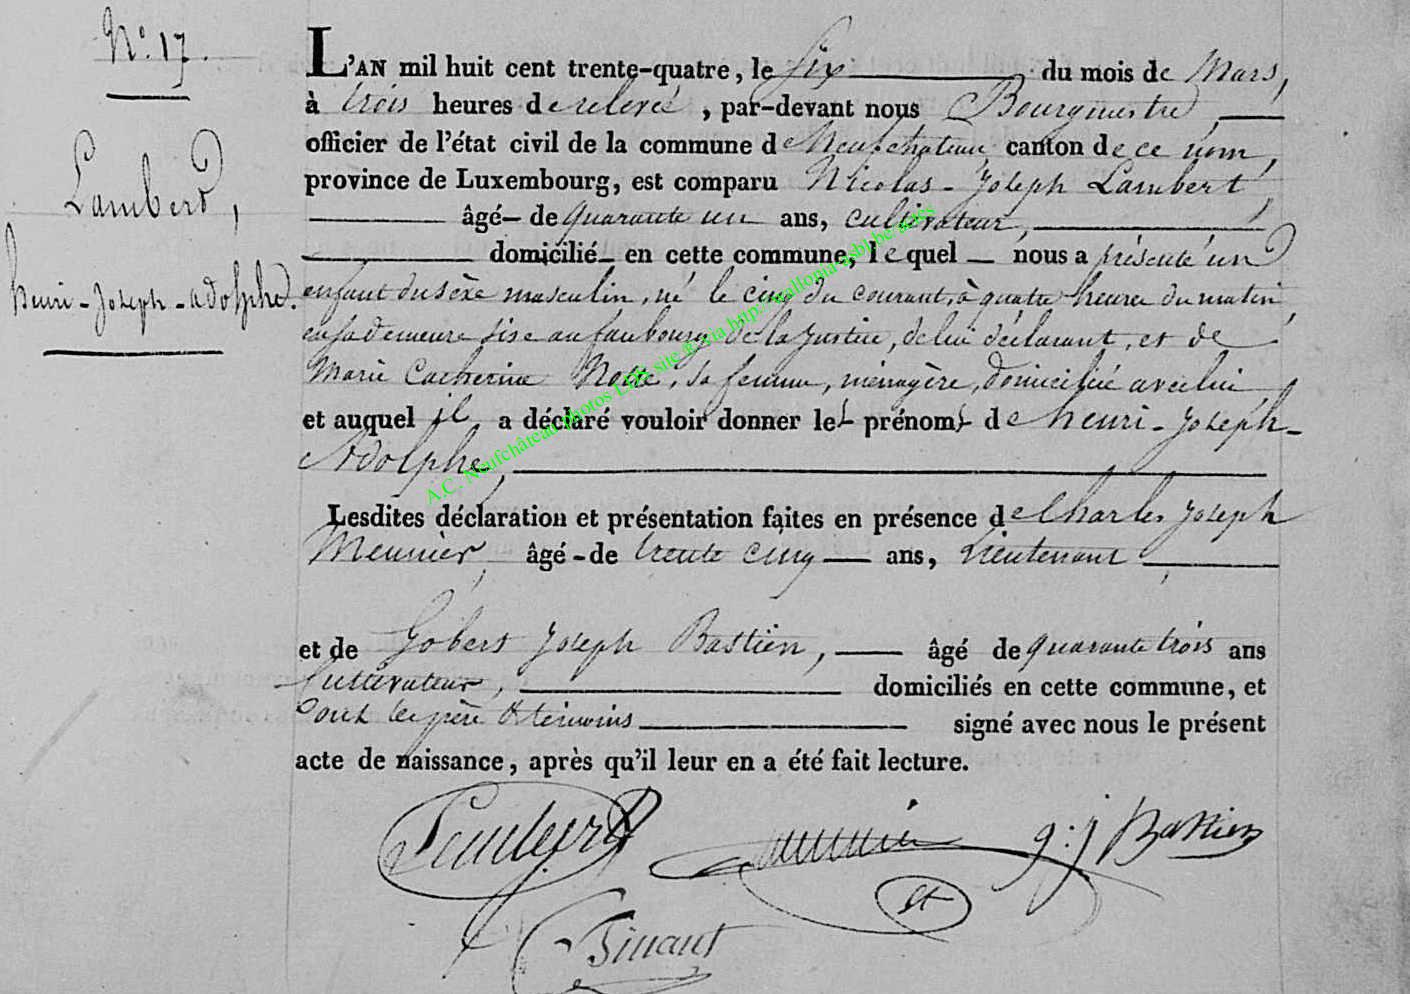 N.º 17.
Lambert,
henri-Joseph-adolphe.
L'AN mil huit cent trente-quatre, le six du mois de Mars,
à trois heures de relevée, par-devant nous Bourgmestre
officier de l'état civil de la commune de Neufchateau canton de ce nom,
province de Luxembourg, est comparu Nicolas-Joseph Lambert,
âgé de quarante un ans, cultivateur,
domicilié en cette commune, lequel nous a présenté un
enfant du sèxe masculin, né le cinq du courant, à quatre heures du matin,
en sa demeure sise au faubourg de la Justice, de lui déclarant, et de
Marie Catherine sa femme, ménagère, domiciliée avec lui
et auquel il a déclaré vouloir donner les prénoms de henri-Joseph-
Adolphe,
Lesdites déclaration et présentation faites en présence de Charles Joseph
Meunier, âgé de trente cinq ans, Lieutenant,
et de Gobert Joseph Bastien, âgé de quarante trois ans
Cultivateur, domiciliés en cette commune, et
ont les père & témoins signé avec nous le présent
acte de naissance, après qu'il leur en a été fait lecture.
Lambert Meunier g: j Bastien
et
Binant
A.C. Neufchâteau photos LDS site & via http://wallonia-asbl.be/actes